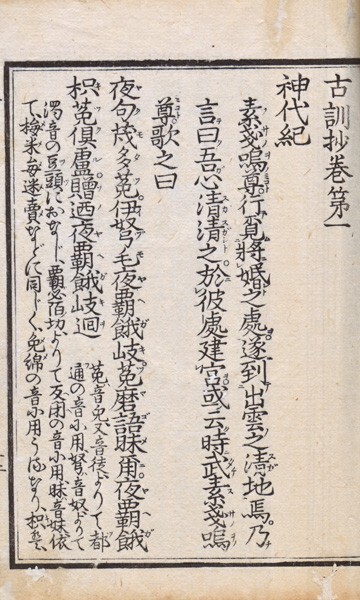 古訓抄卷第一
神代紀
素戔嗚尊行覓將婚之處遂到出雲之清地焉乃
言曰吾心清清之於彼處建宮或云時武素戔嗚
尊歌之曰
夜句茂多菟伊弩毛夜覇餓岐菟磨語昧爾夜覇餓
枳菟倶盧贈廼夜覇餓岐廻
菟音兔又音徒よりて都
通の音に用弩音奴よりて
濁音の頭におなじ覇切よりて反閉の音に用昧音妹依
て、梅米毎迷賣などに同じく免綿の音に用うるなり枳